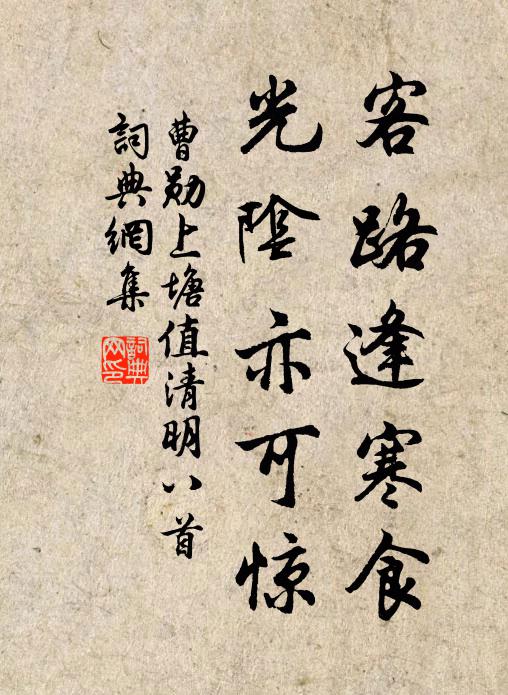 客路逢寒食
光陰亦可惊
曹勛上塘值清明八首
詞典網集
詞典网印